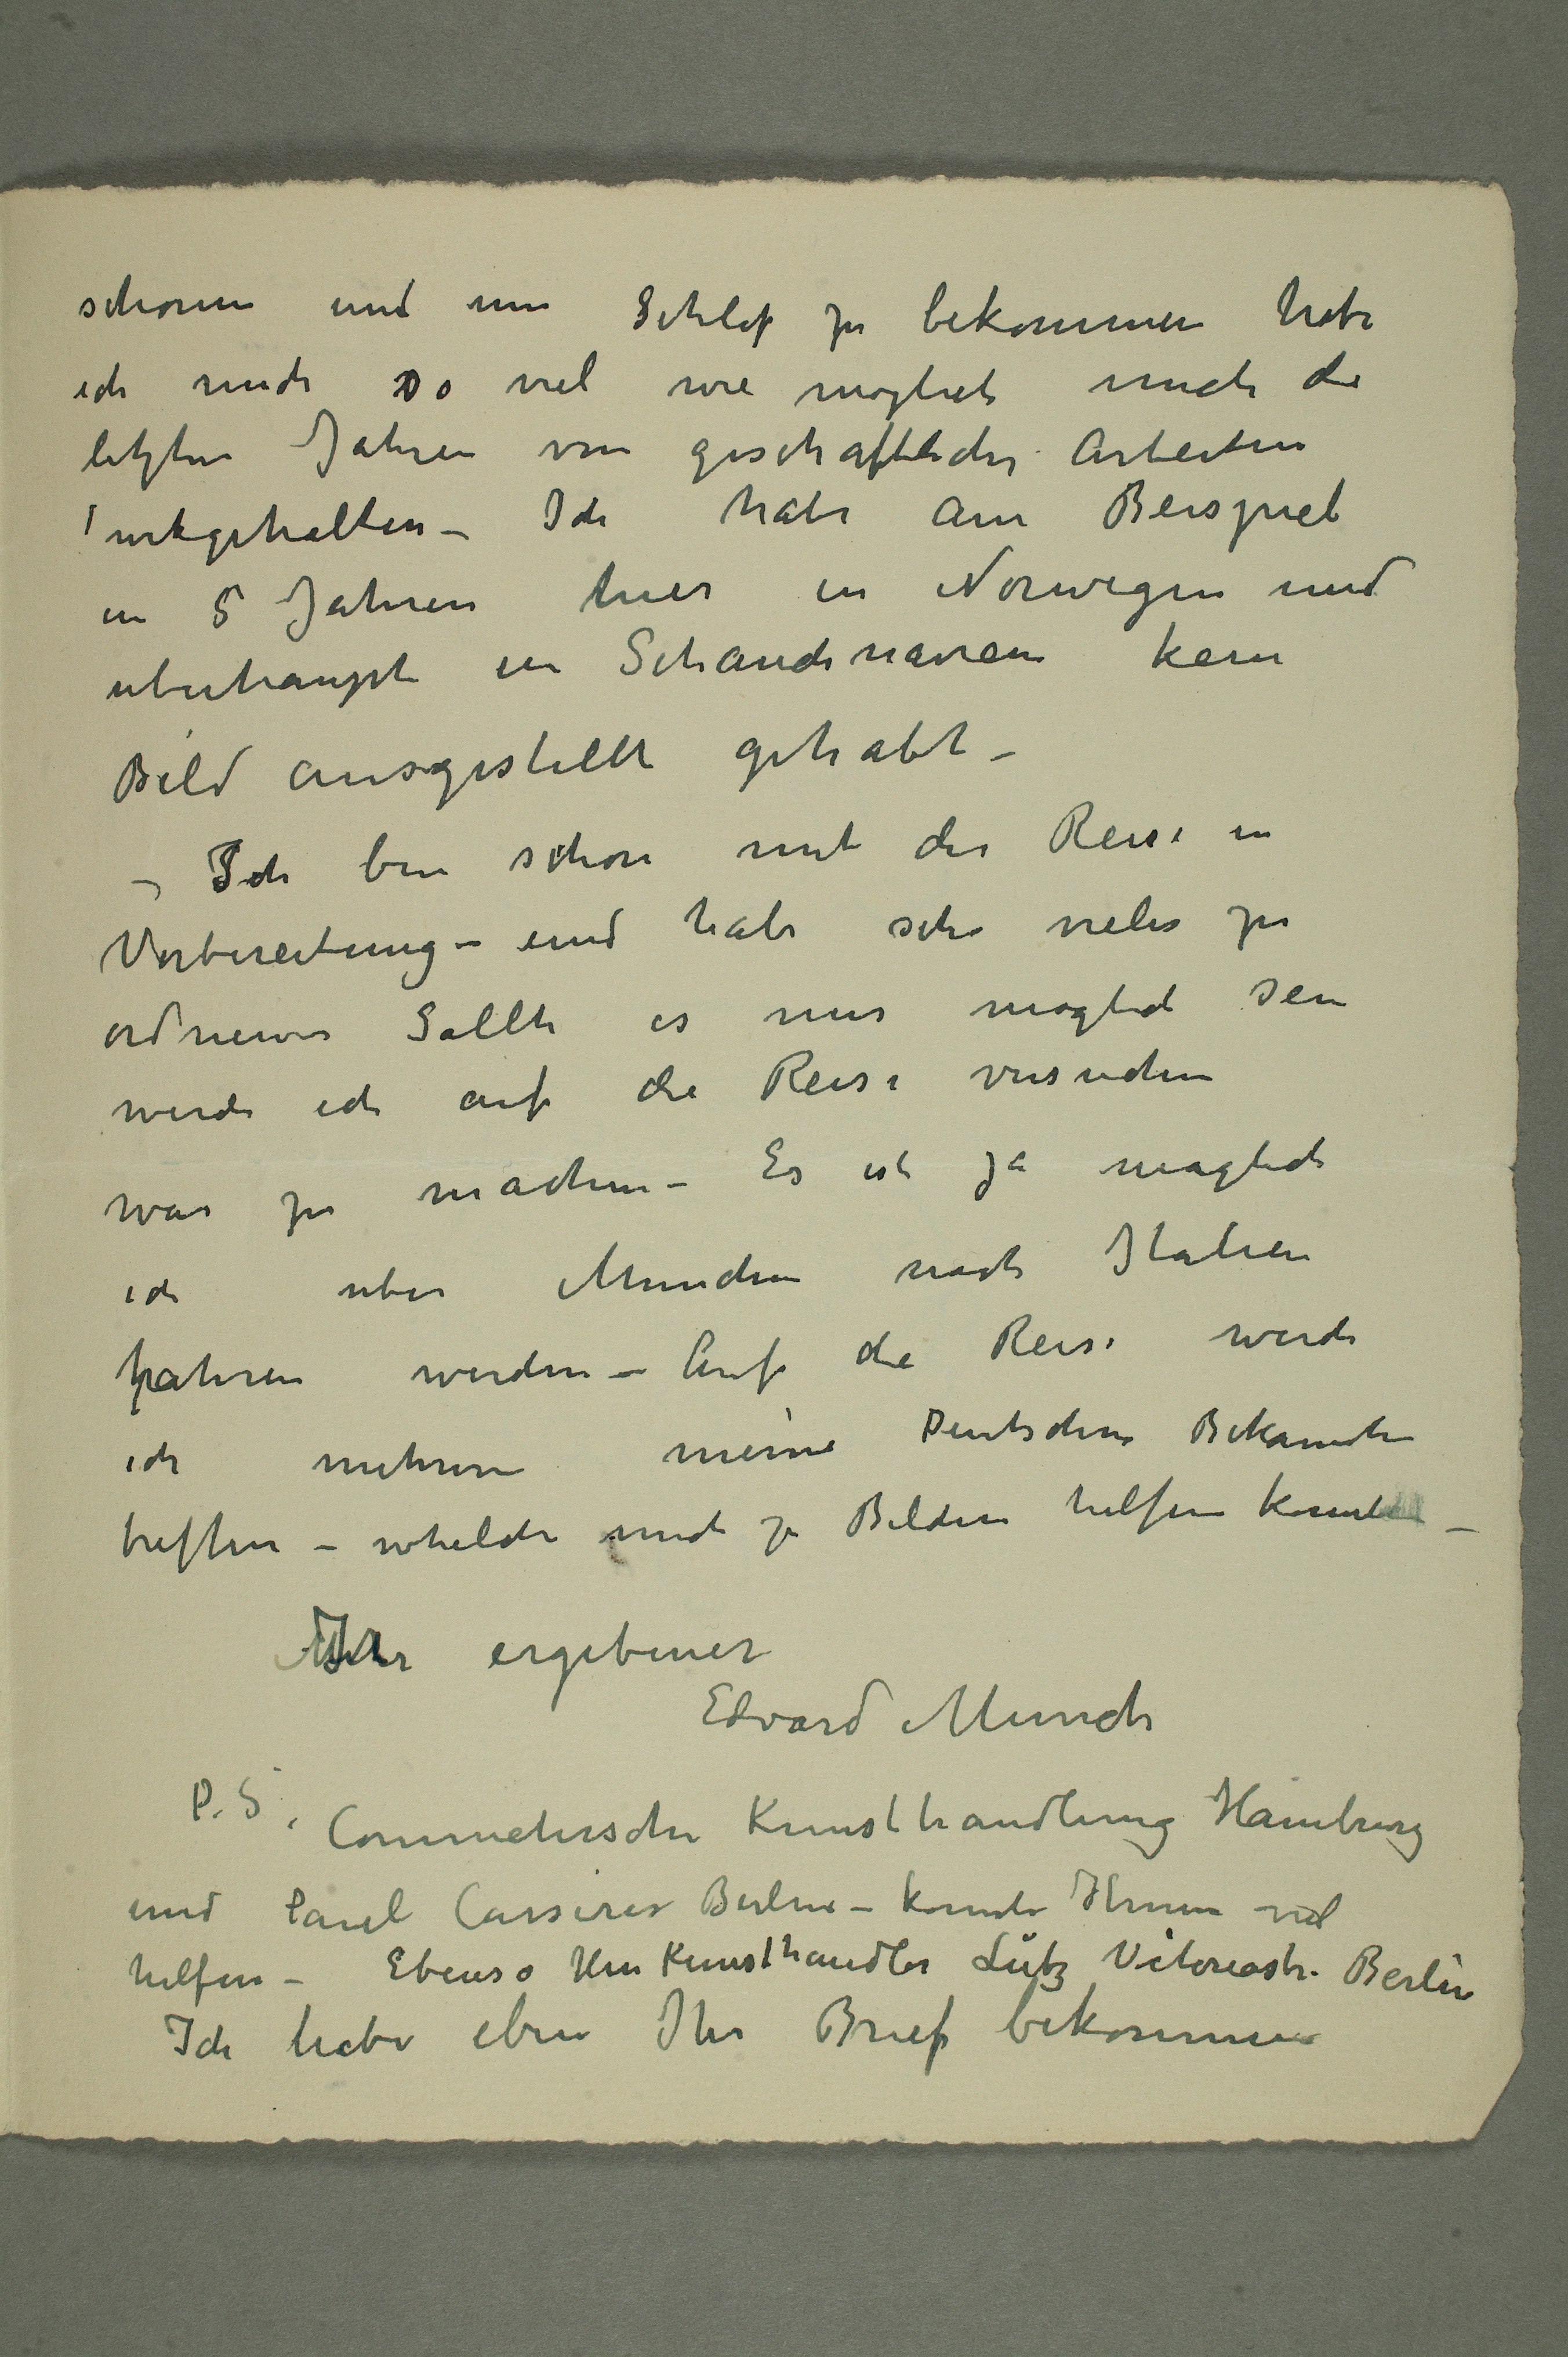 schonen und um Schlaf zu bekommen habe
ich mich so viel wie moglich mich die
letzten Jahren von geschaftlicher Arbeiten
urkgehalten – Ich habe am Beispiel
in 5 Jahren hier in Norwegen und
uberhaupt in Schandinavien kein
Bild ausgestellt gehabt –
– Ich bin schon mit der Reise in
Vorbereitung – und habe sehr vieles zu
ordnen Sollte es mir moglich sein
werde ich auf die Reise versuchen
was zu machen – Es ist ja moglich
ich uber Munchen nach Italien
fahren werden – Auf die Reise werde
ich mehrere meine Deutschen Bekannte
treffen – whelche mich zu Bildern helfen konnte –
Ihr ergebener
Edvard Munch
P.S. Commetersche Kunsthandlung Hamburg
und Paul Cassirer Berlin – konnte Ihnen viel
helfen – Ebenso Hrn Kunsthandler Lutz Victoriastr. Berlin
Ich habe eben Ihr Brief bekommen